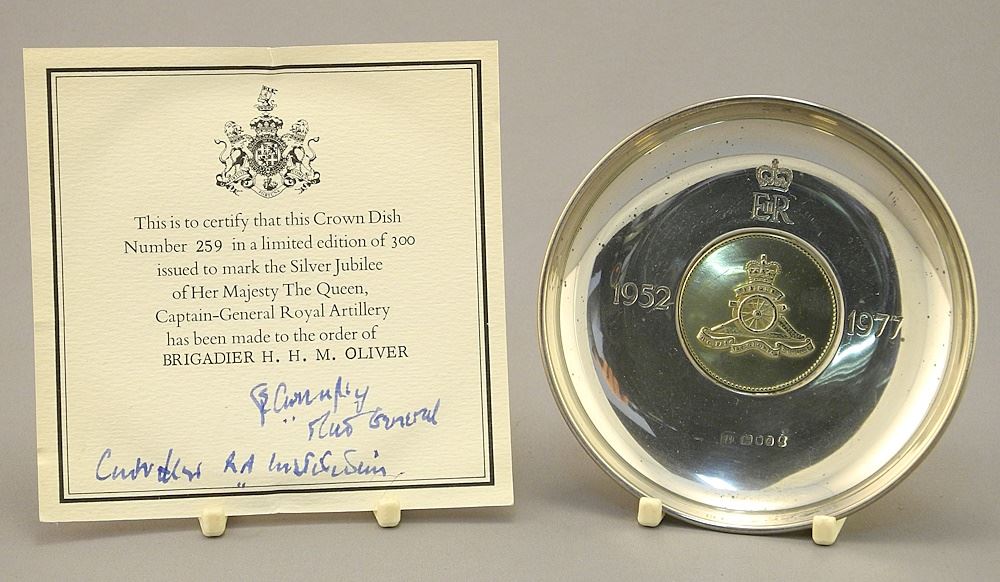 This is to certify that this Crown Dish
Number 259 in a limited edition of 300
issued to mark the Silver Jubilee
of Her Majesty The Queen,
Captain-General Royal Artillery
has been made to the order of
BRIGADIER H. H. M. OLIVER
General
RA Institution
EIIR
1952
1977